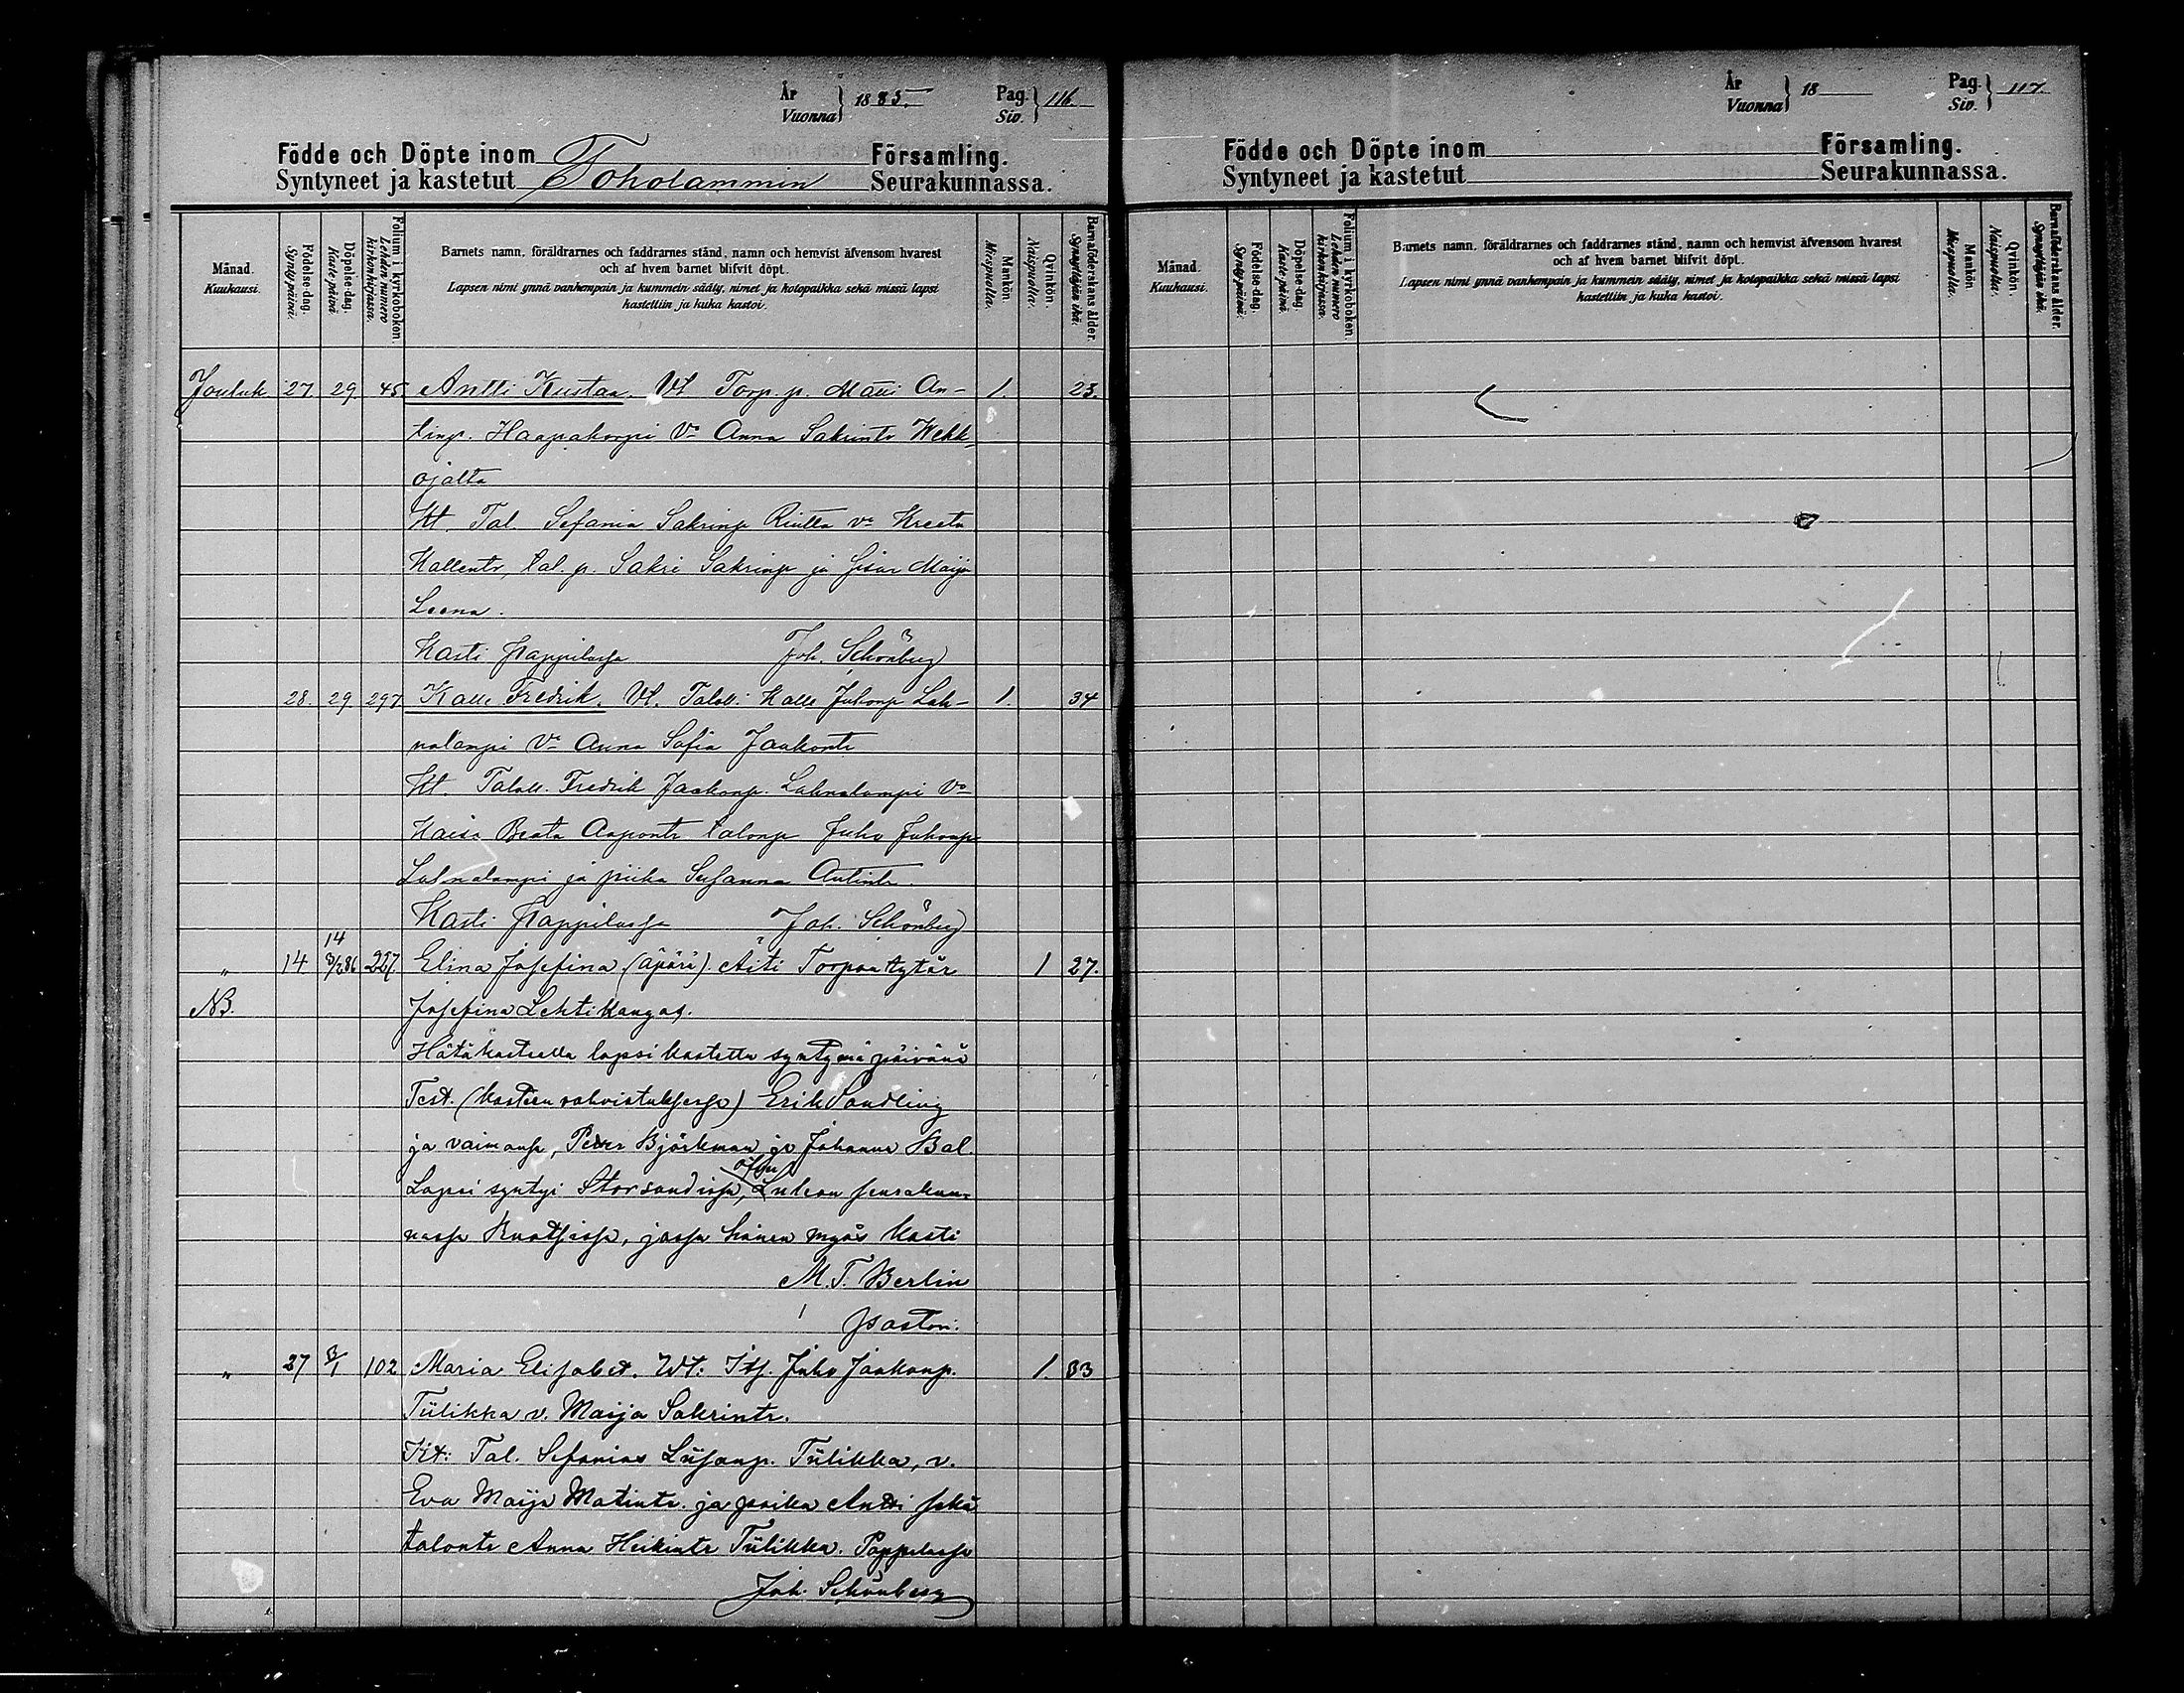 År Vuonna } 1885. Pag. Siv. } 116.
Födde och Döpte inom Församling.
Syntyneet ja kastetut Toholammin Seurakunnassa.
Månad. Kuukausi.
Födelse-dag. Syntymä-päivä.
Döpelse-dag. Kaste-päivä.
Folium i kyrkoboken. Lehden numero kirkonkirjassa.
Barnets namn, föräldrarnes och faddrarnes stånd, namn och hemvist äfvensom hvarest
och af hvem barnet blifvit döpt.
Lapsen nimi ynnä vanhempain ja kummein sääty, nimet ja kotopaikka sekä missä lapsi
kastettiin ja kuka kastoi.
Mankön. Miespuolia.
Qvinkön. Naispuolia.
Barnaföderskans ålder. Synnyttäjän ikä.
Jouluk. 27. 29. 45. Antti Kustaa. Vt Torp. p. Matti An- 1. 23.
tinp. Haapakorpi Vo Anna Sakrintr Wehk-
ojalta
Kt. Tal. Sefania Sakrinp Riutta vo Kreeta
Kallentr, tal. p. Sakri Sakrinp ja sisar Maija
Leena.
Kasti Pappilassa Joh. Schönberg
28. 29. 297 Kalle Fredrik. Vt. Taloll. Kalle Juhonp Lah- 1. 34
nalampi Vo Anna Sofia Jaakontr
Kt. Taloll. Fredrik Jaakonp. Lahnalampi Vo
Kaisa Beata Aapontr talonp Juho Juhonp
Lahnalampi ja piika Susanna Antintr.
Kasti Pappilassa Joh. Schönberg
14
„ 14 3/2 86 227. Elina Josefina (äpärä). Äiti Torpan tytär 1 27.
NB. Josefina Lehtikangas.
Hätäkasteella lapsi kastettu syntymä päivänä
Test. (kasteen vahvistuksessa) Erik Sandling
ja vaimonsa, Peter Björkman ja Johanna Bal.
Lapsi syntyi Storsandissa, Luleån seurakun-
nassa Ruotsissa, jossa hänen myös kasti
M. T. Berlin
pastori.
„ 27 3/1 102 Maria Elisabet. Wt: Its. Juho Jaakonp. 1. 33
Tiilikka v. Maija Sakrintr.
Kt: Tal. Sefanias Liisanp. Tiilikka, v.
Eva Maija Matintr. ja poika Antti sekä
talontr Anna Heikintr Tiilikka. Pappilassa
Joh. Schönberg
År Vuonna } 18 Pag. Siv. } 117.
Födde och Döpte inom Församling.
Syntyneet ja kastetut Seurakunnassa.
Månad. Kuukausi.
Födelse-dag. Syntymä-päivä.
Döpelse-dag. Kaste-päivä.
Folium i kyrkoboken. Lehden numero kirkonkirjassa.
Barnets namn, föräldrarnes och faddrarnes stånd, namn och hemvist äfvensom hvarest
och af hvem barnet blifvit döpt.
Lapsen nimi ynnä vanhempain ja kummein sääty, nimet ja kotopaikka sekä missä lapsi
kastettiin ja kuka kastoi.
Mankön. Miespuolia.
Qvinkön. Naispuolia.
Barnaföderskans ålder. Synnyttäjän ikä.